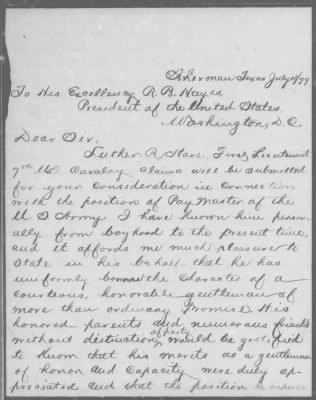 Sherman Texas July 11/79
To His Excellency R. B. Hayes
President of the United States
Washington, D. C
Dear Sir.
Luther R Hare First Lieutenant
7th U.S. Cavalry claims will be submitted
for your consideration in connection
with the position of Pay Master of the
U S Army I have known him person-
ally from boyhood to the present time,
and it affords me much pleasure to
State in his behalf that he has
uniformly borne the character of a
courteous, honorable gentleman of
more than ordinary promise. His
honored parents and numerous friends
without distinction of party would be gratified
to know that his merits as a gentleman
of honor and capacity were duly ap-
preciated and that the position he